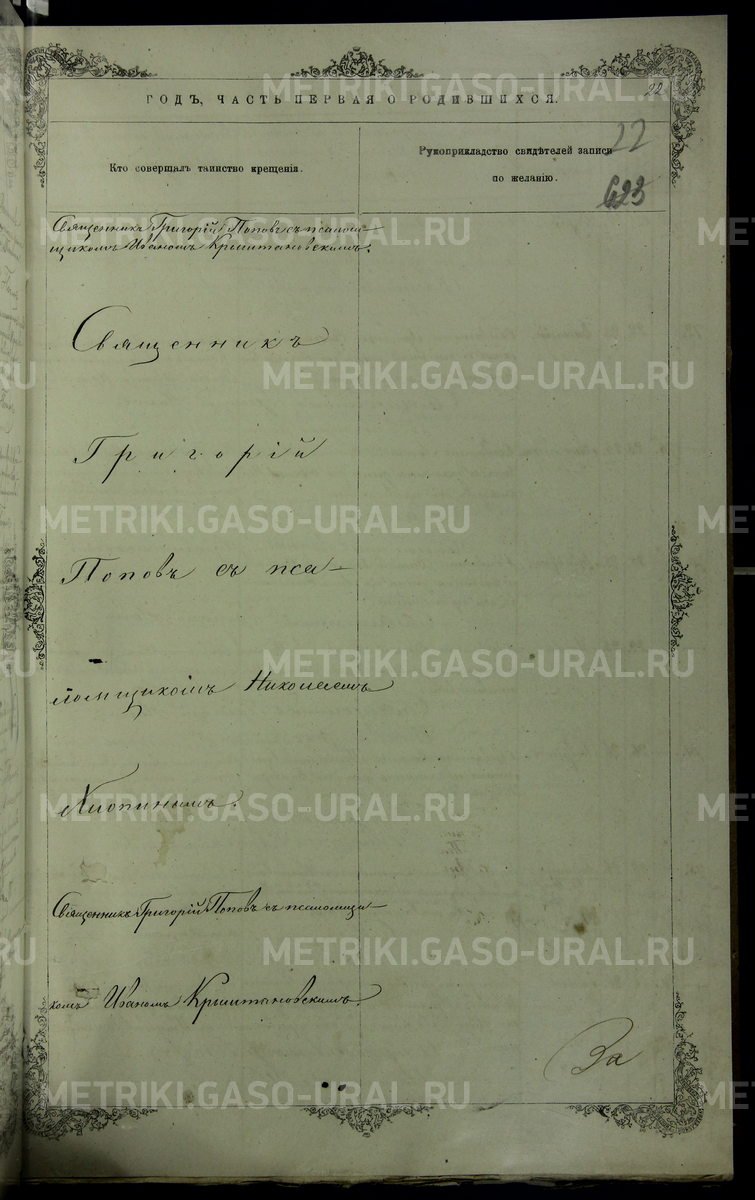 22
ГОДЪ, ЧАСТЬ ПЕРВАЯ О РОДИВШИХСЯ.
Кто совершалъ таинство крещенія.
Рукоприкладство свидѣтелей записи
по желанію.
22
623
Священникъ Григорій Поповъ съ псалом-
щикомъ Иваномъ Крыштановскимъ.
Священникъ
Григорій
Поповъ съ пса-
ломщикомъ Николаемъ
Хлопинымъ.
Священникъ Григорій Поповъ съ псаломщи-
комъ Иваномъ Крыштановскимъ.
За
METRIKI.GASO-URAL.RU